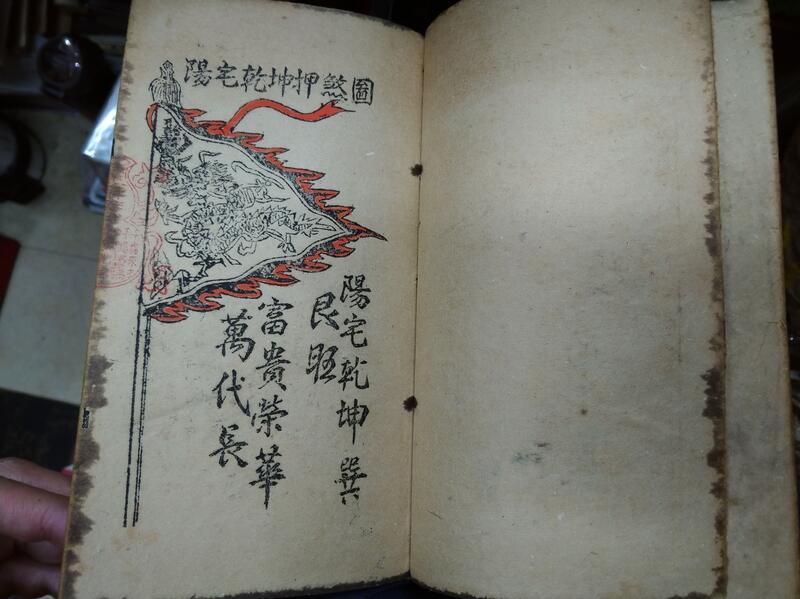 陽宅乾坤押煞圖
陽宅乾坤巽
艮旺
富貴榮華
萬代長